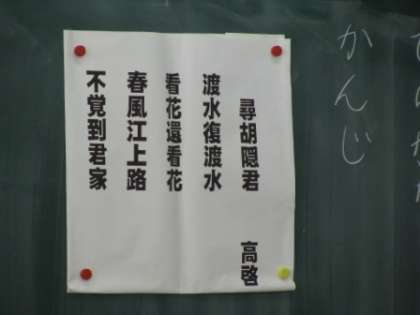 かんじ
尋胡隠君 高啓
渡水復渡水
看花還看花
春風江上路
不覚到君家